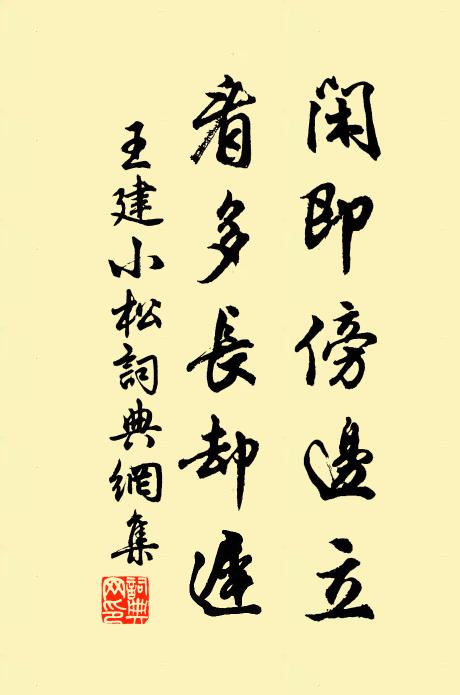 閑即傍邊立
看多長却遲
王建小松詞典網集
詞典網印